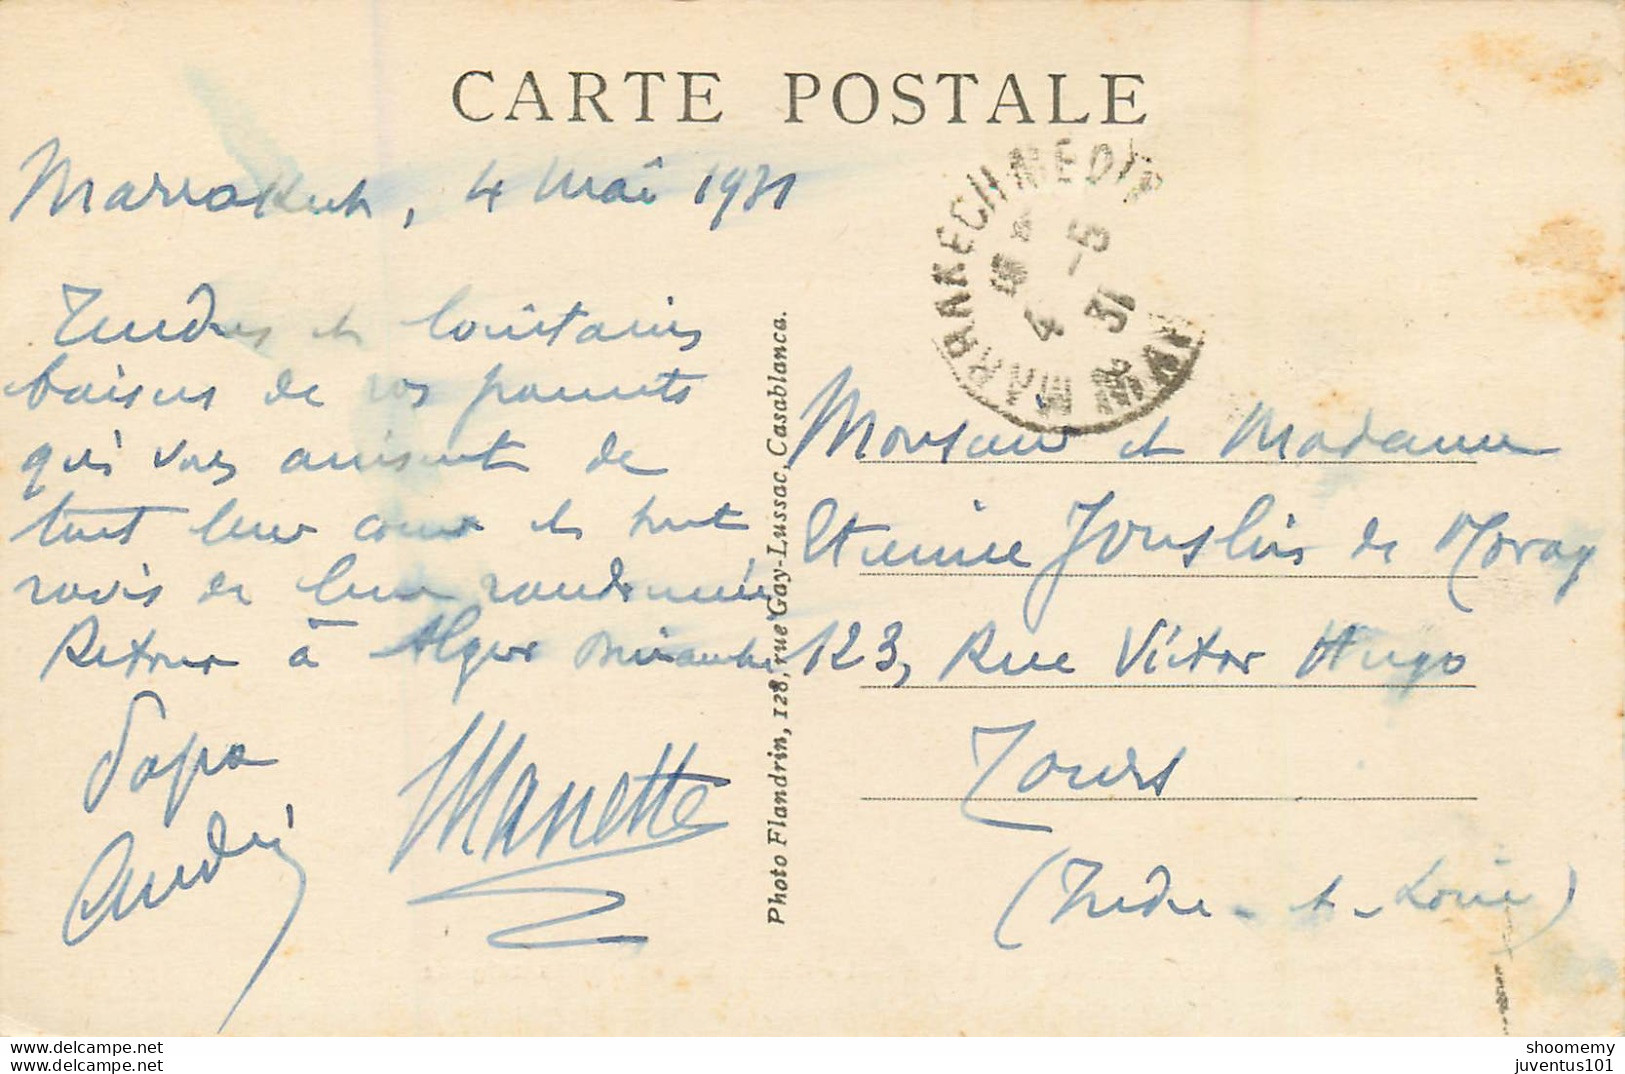 CARTE POSTALE
Marrakech, 4 Mai 1931
Tendres et lointains
baisers de vos parents
qui vous aiment de
tout leur cœur et sont
ravis de leur randonnée
Retour à Alger Dimanche
Papa
André
Manette
Photo Flandrin, 128, rue Gay-Lussac, Casablanca.
MARRAKECH MEDINA
4 -5
31
MAROC
Monsieur et Madame
Etienne Jouslin de Noray
123, Rue Victor Hugo
Tours
(Indre-et-Loire)
delcampe.net
juventus101
shoomemy
juventus101